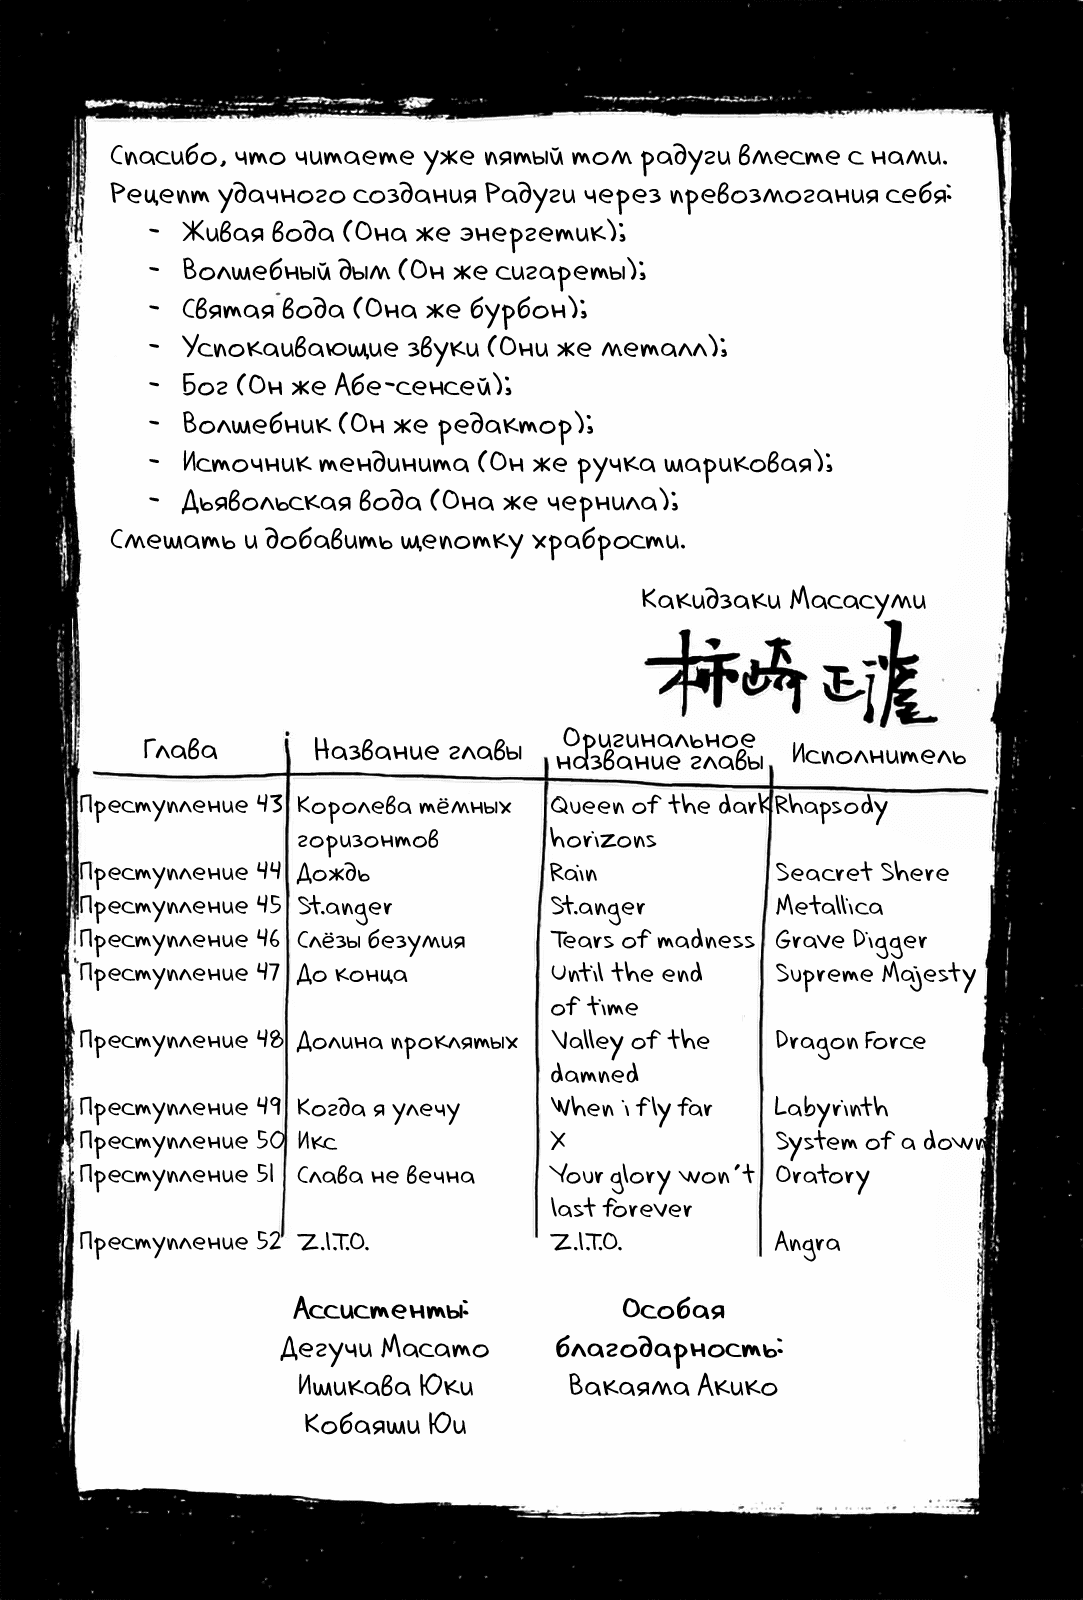 Спасибо, что читаете уже пятый том радуги вместе с нами.
Рецепт удачного создания Радуги через превозмогания себя:
- Живая вода (Она же энергетик);
- Волшебный дым (Он же сигареты);
- Святая вода (Она же бурбон);
- Успокаивающие звуки (Они же металл);
- Бог (Он же Абе-сенсей);
- Волшебник (Он же редактор);
- Источник тендинита (Он же ручка шариковая);
- Дьявольская вода (Она же чернила);
Смешать и добавить щепотку храбрости.
Какидзаки Масасуми
柿崎正澄
Глава Название главы Оригинальное название главы Исполнитель
Преступление 43 Королева тёмных Queen of the dark Rhapsody
горизонтов horizons
Преступление 44 Дождь Rain Seacret Shere
Преступление 45 St.anger St.anger Metallica
Преступление 46 Слёзы безумия Tears of madness Grave Digger
Преступление 47 До конца Until the end Supreme Majesty
of time
Преступление 48 Долина проклятых Valley of the Dragon Force
damned
Преступление 49 Когда я улечу When i fly far Labyrinth
Преступление 50 Икс X System of a down
Преступление 51 Слава не вечна Your glory won't Oratory
last forever
Преступление 52 Z.I.T.O. Z.I.T.O. Angra
Ассистенты:
Дегучи Масато
Ишикава Юки
Кобаяши Юи
Особая
благодарность:
Вакаяма Акико